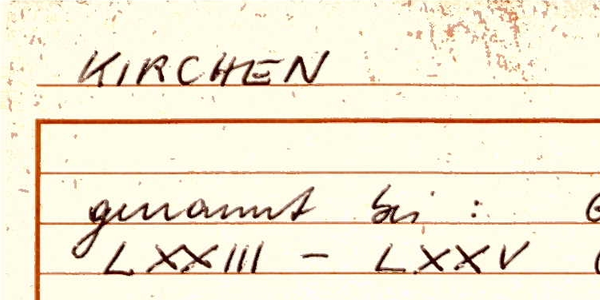 KIRCHEN
genannt bei :
LXXIII - LXXV